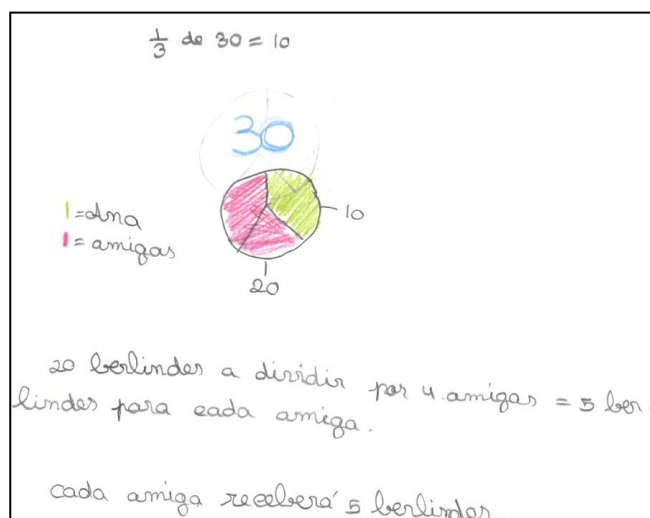 1/3 de 30 = 10
30
= Ana
= amigas
10
20
20 berlindes a dividir por 4 amigas = 5 ber-
lindes para cada amiga.
cada amiga receberá 5 berlindes